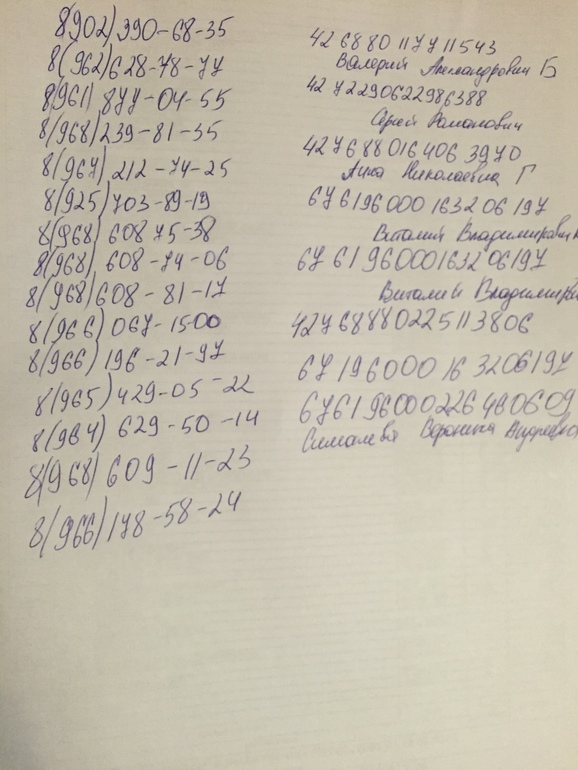 8(902) 390-68-35
8(962) 628-78-77
8(961) 877-04-55
8(968) 239-81-35
8(967) 212-74-25
8(925) 703-89-19
8(968) 608 75-38
8(968) 608-74-06
8(968) 608-81-17
8(966) 067-1500
8(966) 196-21-97
8(965) 429-05-22
8(964) 629-50-14
8(968) 609-11-23
8(966) 178-58-24
426880117711543
Валерий Александрович Б
4272290622986388
Сергей Романович
4276880164063970
Анна Николаевна Г
676196000163206197
Виталий Владимирович
676196000163206197
Виталий Владимирович
4276888022511 3806
67196000163206197
676196000226480609
Вероника